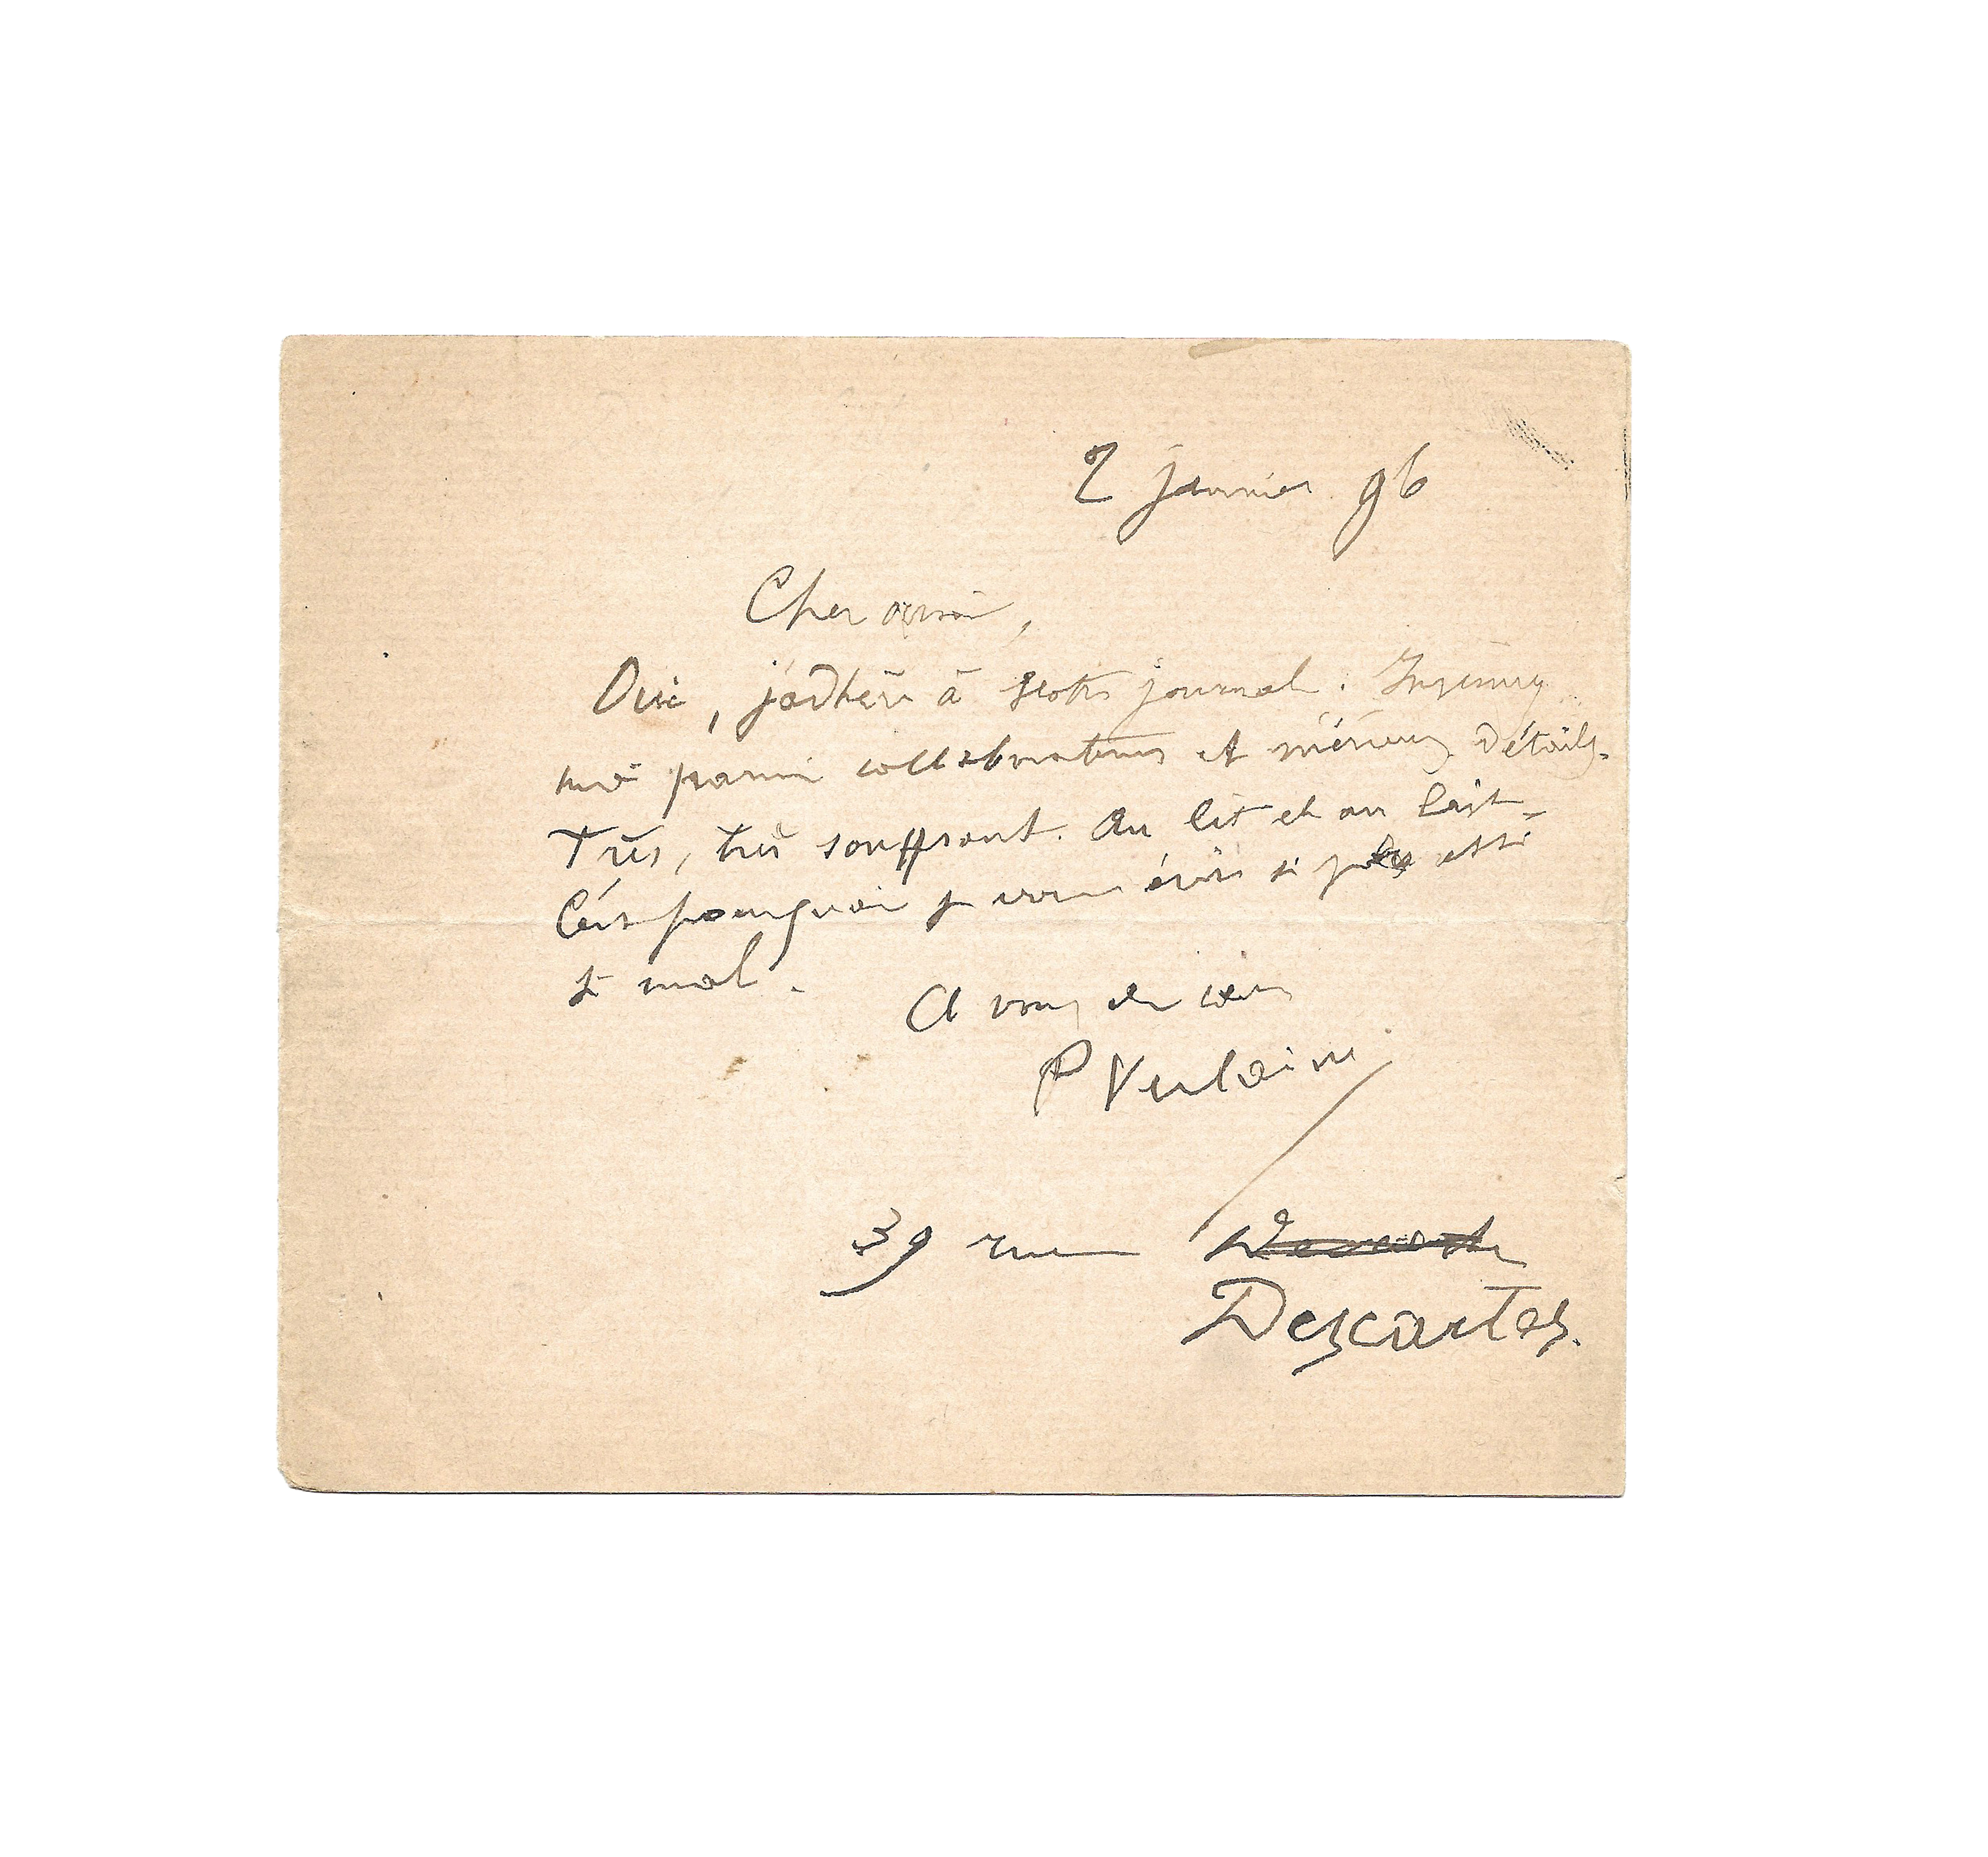 2 janvier 96
Cher ami,
Oui, j'adhère à votre journal.
moi parmi collaborateurs et m'envoyez détails.
Très, très souffrant. Au lit et au lait.
C'est pourquoi je vous écris si peu et si
mal.
A vous de cœur
P Verlaine
39 rue
Descartes.